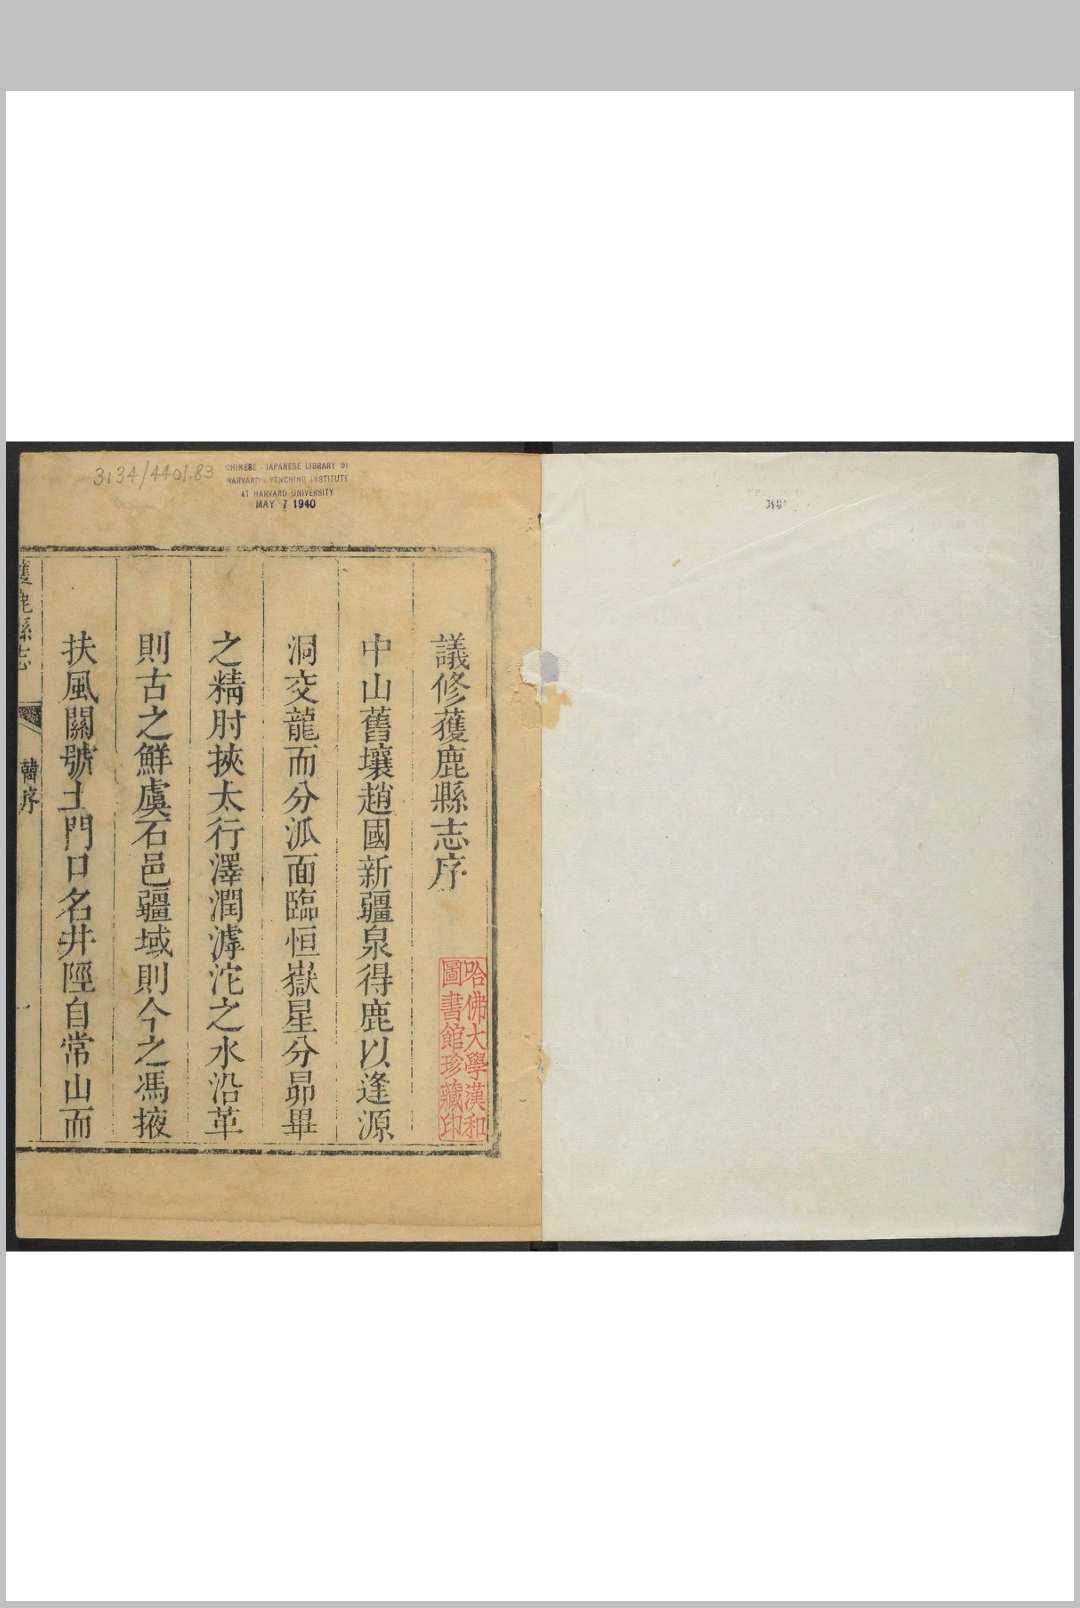 3134/4401.83
CHINESE - JAPANESE LIBRARY OF
HARVARD - YENCHING INSTITUTE
AT HARVARD UNIVERSITY
MAY 7 1940
議修獲鹿縣志序
哈佛大學漢和
圖書館珍藏印
中山舊壤趙國新疆泉得鹿以逢源
洞交龍而分派面臨恒嶽星分昴畢
之精肘挾太行澤潤滹沱之水沿革
則古之鮮虞石邑疆域則今之馮掖
扶風關號土門口名井陘自常山而
獲鹿縣志
韓序
一